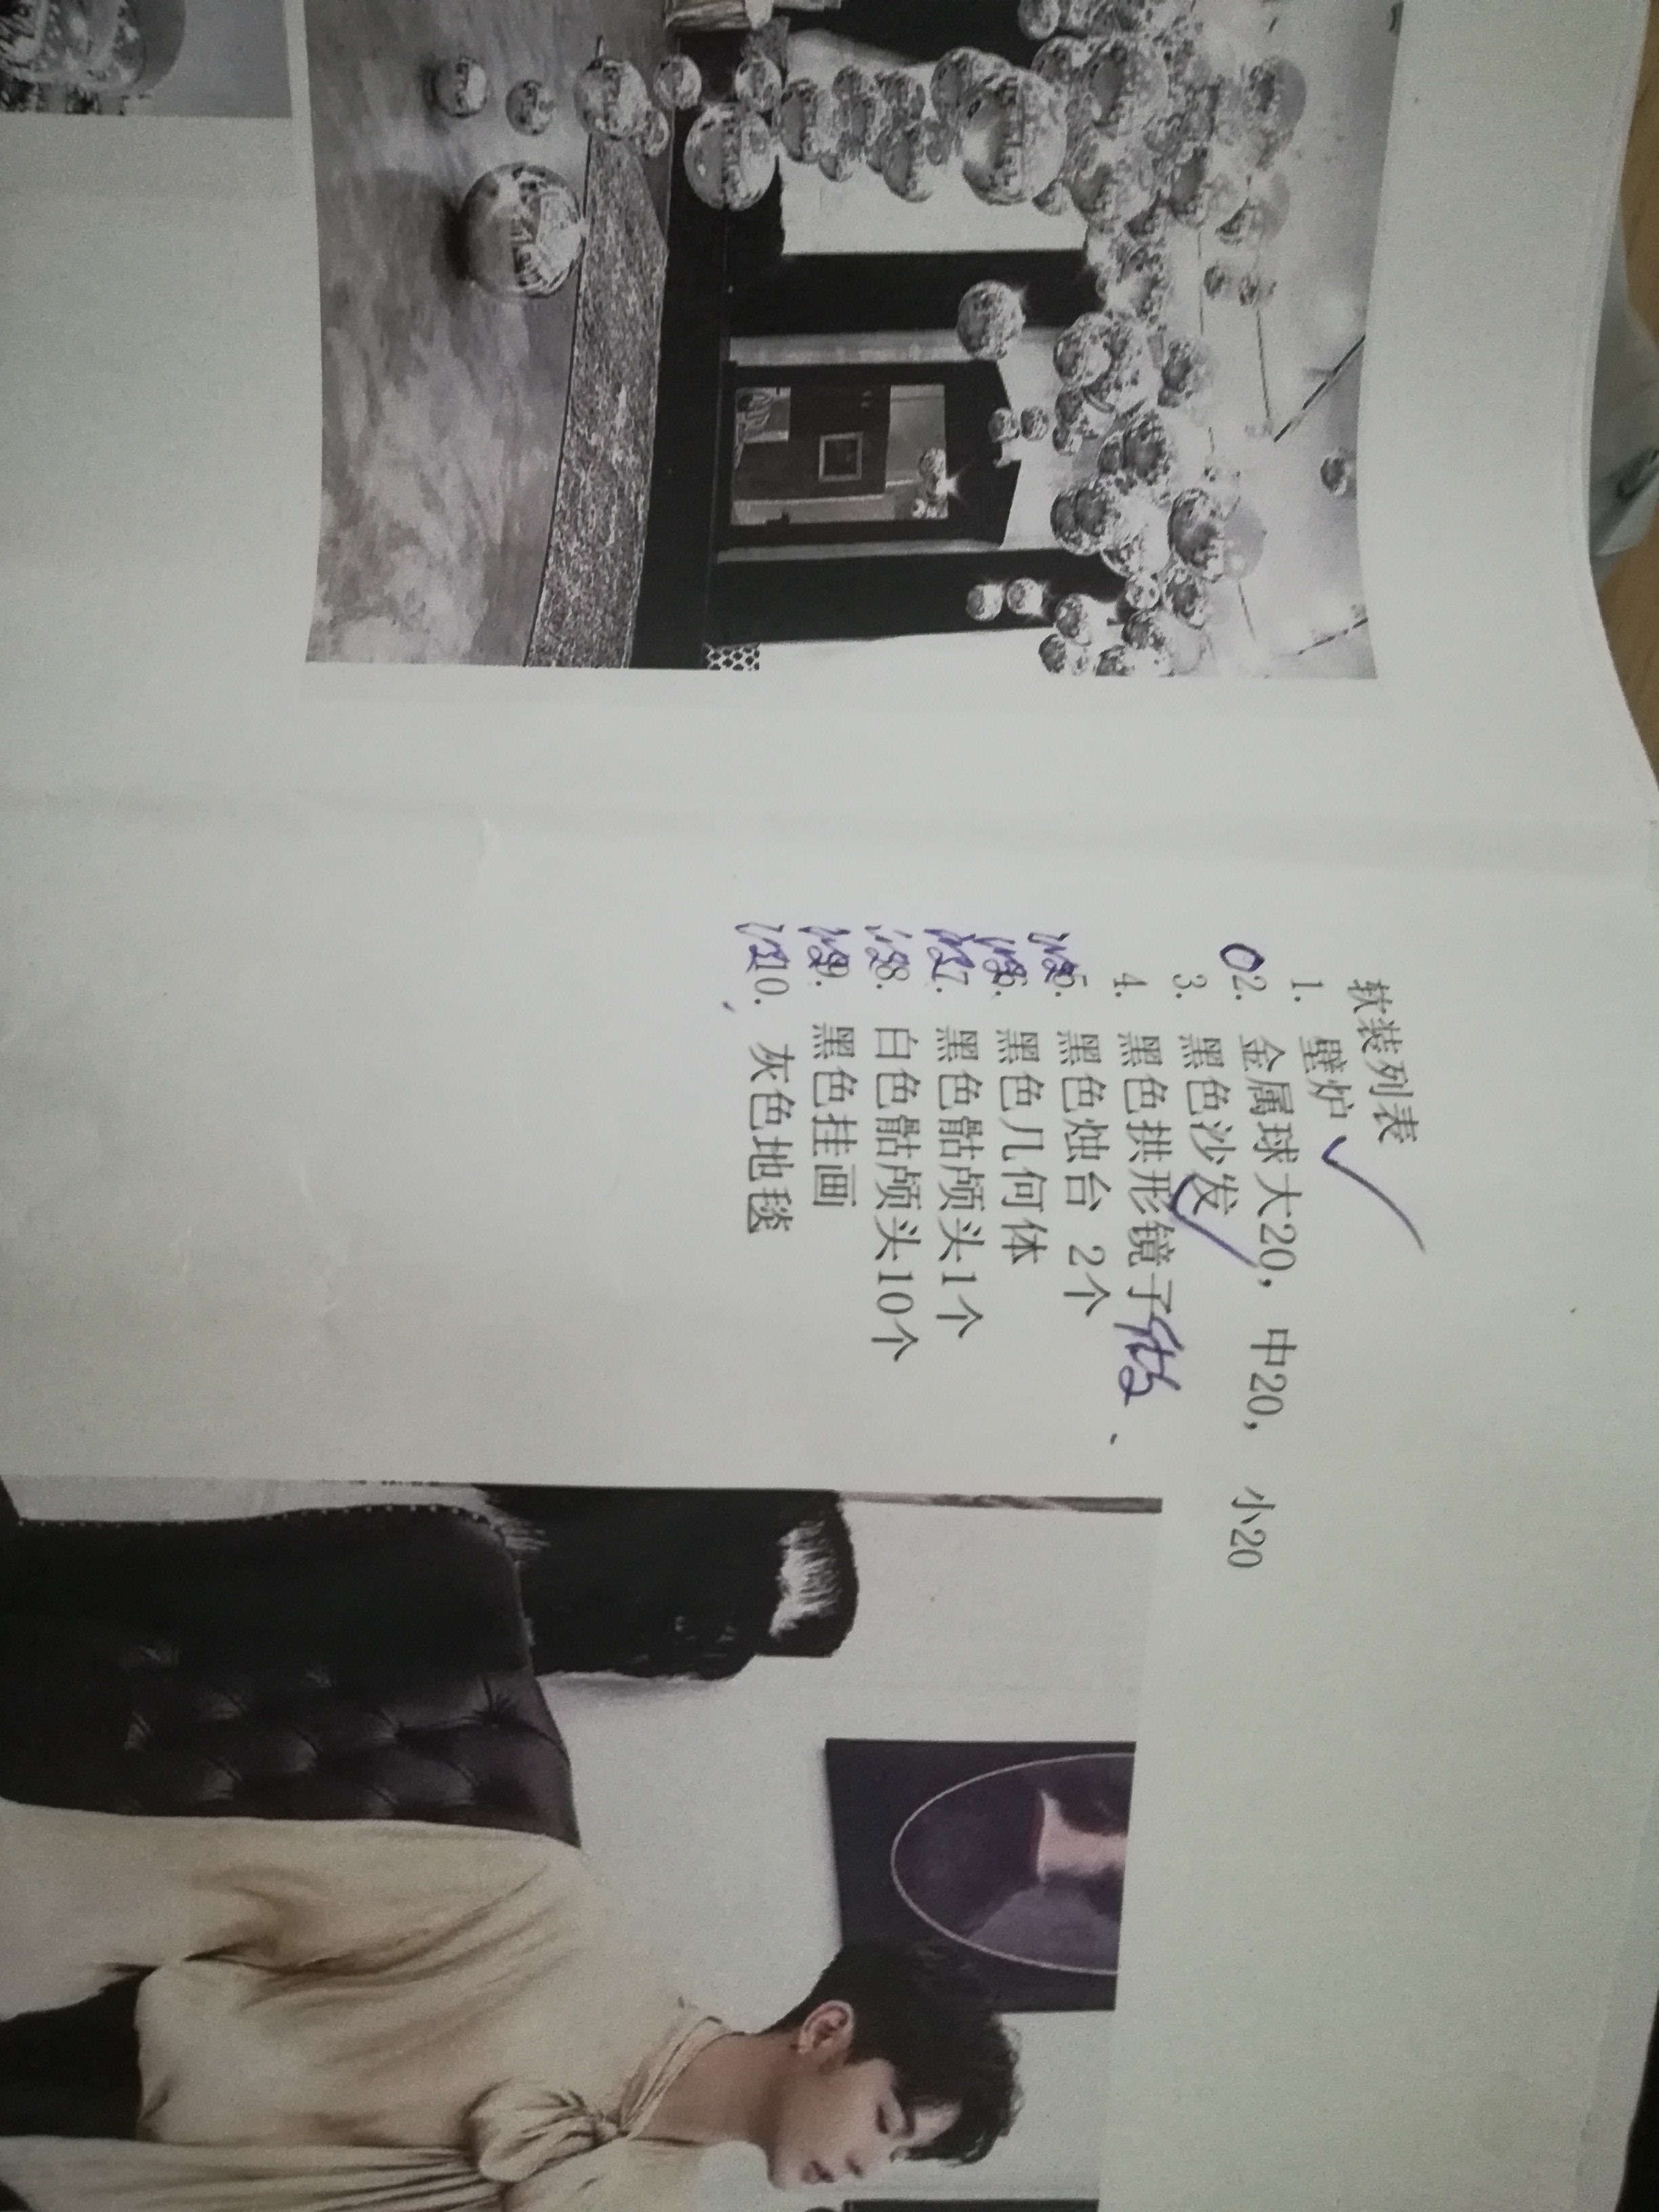 软装列表
1. 壁炉
2. 金属球大20，中20，小20
3. 黑色沙发
4. 黑色拱形镜子
5. 黑色烛台 2个
6. 黑色几何体
7. 黑色骷颅头1个
8. 白色骷颅头10个
9. 黑色挂画
10. 灰色地毯